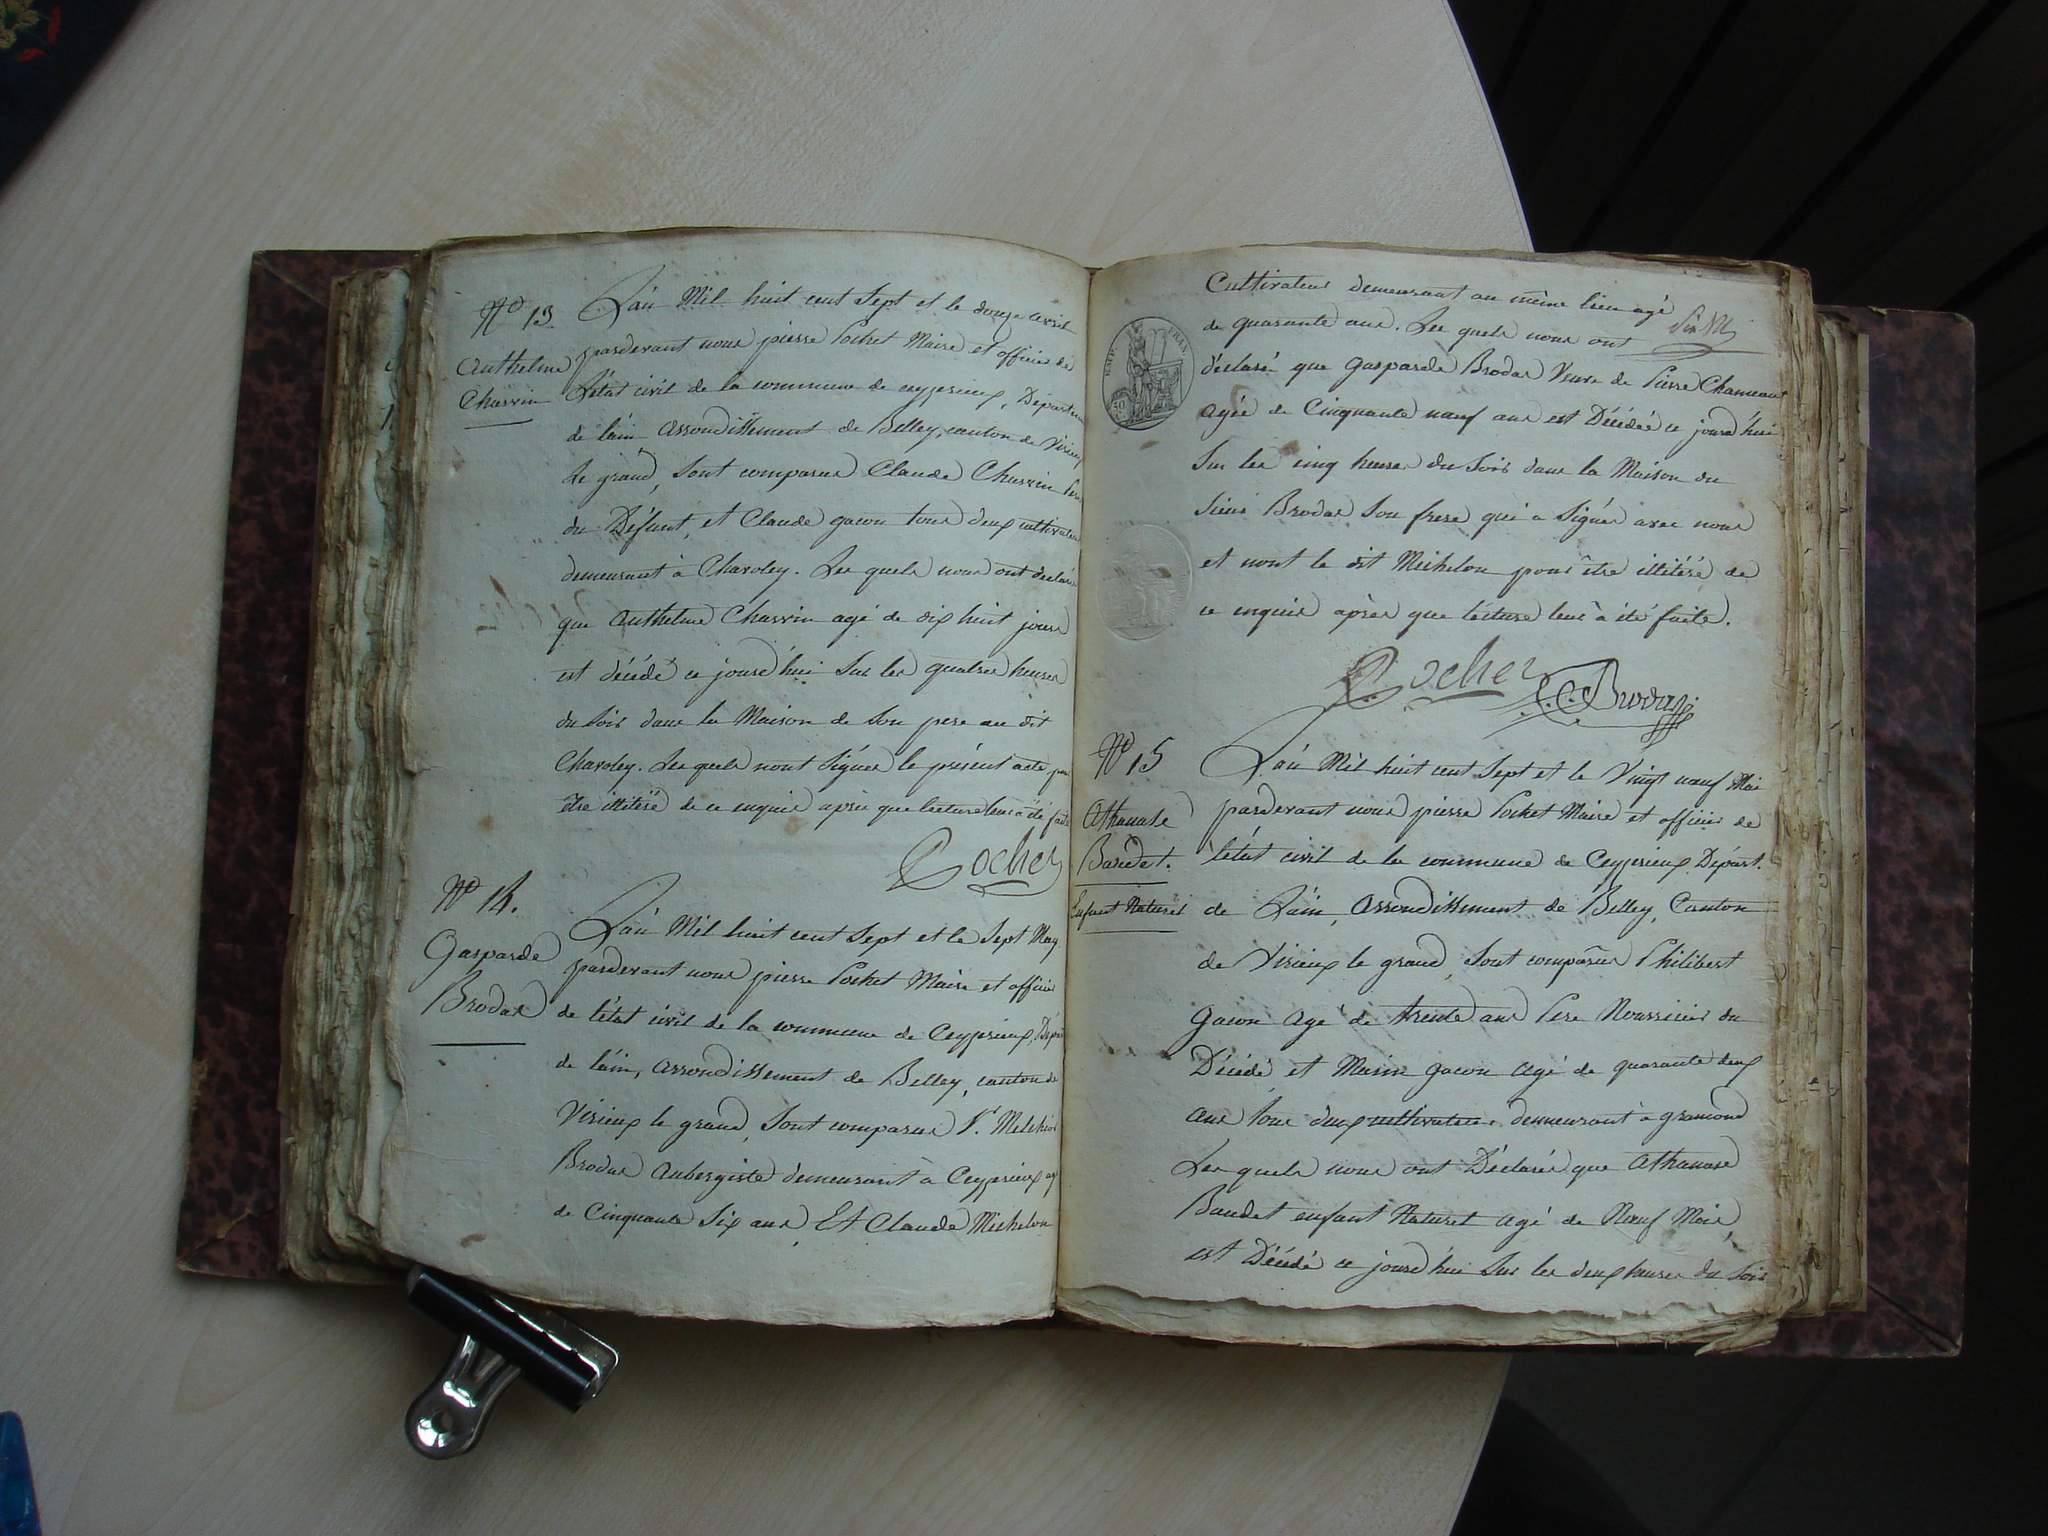 N° 13.
Anthelme
Charvin
L'an Mil huit cent Sept et le douze avril
pardevant nous pierre Pochet Maire et officier de
L'état civil de la commune de ceyzerieux, Départem
de lain arrondissement de Belley, canton de Virieux
le grand, Sont comparus Claude Charvin Pere
du Défunt, et Claude gacon tous deux cultivateurs
demeurant à Charoley. Les quels nous ont déclaré
que Anthelme Charvin agé de dix huit jours
est décédé ce jourd'hui Sur les quatres heures
du Soir dans la Maison de Son pere au dit
Charoley. Les quels nont Signés le présent acte pour
être illitéré de ce enquis après que lecture leur à été faite
Pochet
N° 14.
Gasparde
Brodas
L'an Mil huit cent Sept et le Sept May
pardevant nous pierre Pochet Maire et officier
de létat civil de la commune de Ceyzerieux, Dépar
de láin, arrondissement de Belley, canton de
Virieux le grand, Sont comparus Sr. Melchior
Brodas Aubergiste demeurant à Ceyzerieux agé
de Cinquante Six ans, Et Claude Michelon
Cultivateur demeurant au même lieu agé
de quarante ans. Les quels nous ont
déclaré que Gasparde Brodas Veuve de Pierre Chanvant
agée de Cinquante neuf ans est Décédée ce jourd'hui
Sur les cinq heures du Soir dans la Maison du
Sieur Brodas Son frere qui a Signé avec nous
et nont le dit Michelon pour être illitéré de
ce enquis après que lecture leur à été faite.
Pochet Brodas
EMP. FRAN.
50
N° 15
Athanase
Baudet.
Enfant Naturel
L'an Mil huit cent Sept et le Vingt neuf Mai
pardevant nous pierre Pochet Maire et officier de
l'état civil de la commune de Ceyzerieux Départ.
de Lain, Arrondissement de Belley, Canton
de Virieux le grand, Sont comparus Philibert
Gacon Agé de trente ans Pere Nourricier du
Décédé et Marin gacon Agé de quarante deux
ans tous deux cultivateurs demeurant à gramond
Les quels nous ont Déclarés que Athanase
Baudet enfant Naturel agé de Neuf Mois,
est Décédé ce jourd'hui Sur les deux heures du Soir